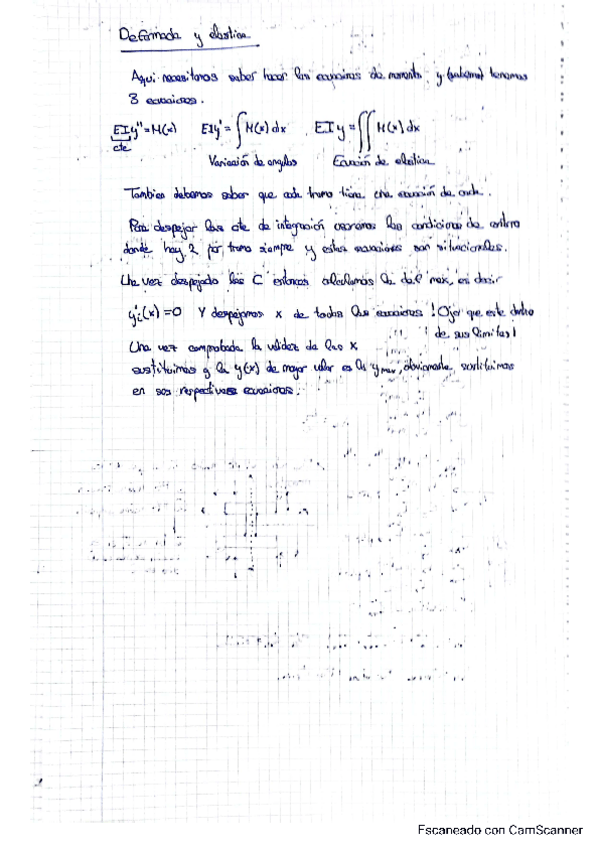 Deformada y elastica
Aqui necesitamos saber hacer las ecuaciones de momento y tenemos
3 ecuaciones.
EIy''=M(x) EIy'=∫M(x)dx EIy=∬M(x)dx
cte
Variación de angulos Ecuación de elastica
Tambien debemos saber que cada tramo tiene una ecuación de cada.
Para despejar las cte de integración usaremos las condiciones de entorno
donde hay 2 por tramo siempre y estas ecuaciones son situacionales.
Una vez despejado las C entonces calculamos la def max, es decir
y'i(x)=0 Y despejamos x de todas las ecuaciones ! Ojo que este dentro
de sus limites!
Una vez comprobada la validez de las x
sustituimos y la y(x) de mayor valor es la ymax, obviamente sustituimos
en sus respectivas ecuaciones.
Escaneado con CamScanner